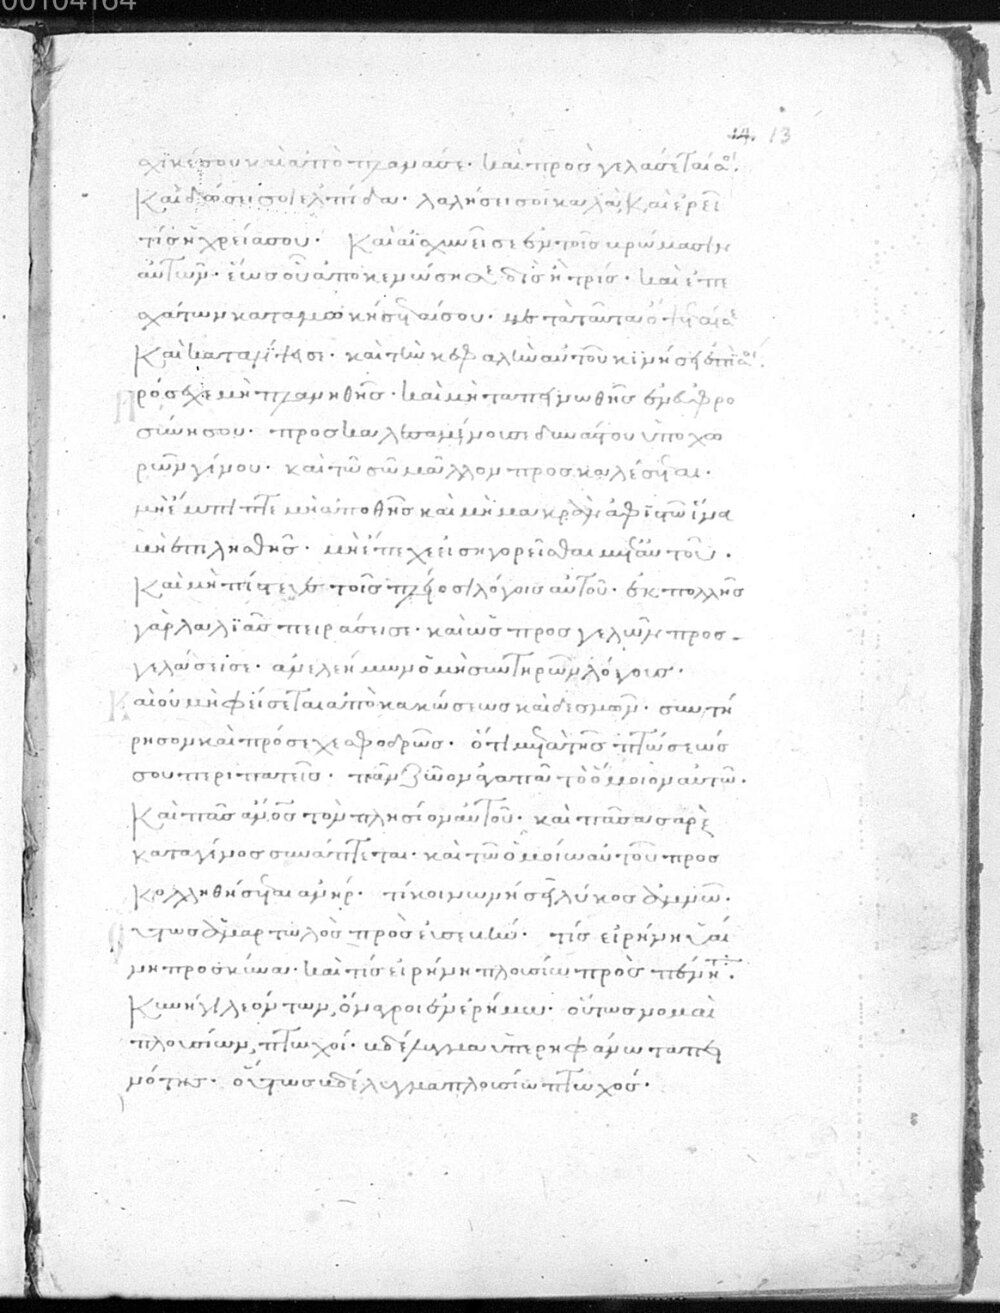 00104164
14. 13
σχῇ κέ σου καὶ ἀποπλανᾷ σε· καὶ προσγελάσεταί σοι.
Καὶ δώσει σοι ἐλπίδα· λαλήσει σοι καλὰ, καὶ ἐρεῖ
τίς ἡ χρεία σου· Καὶ αἰσχυνεῖ σε ἐν τοῖς βρώμασιν
αὐτῶν· ἕως οὗ ἀποκενώσῃ σε δὶς ἢ τρίς· καὶ ἐπ' ἐ
σχάτων καταμωκήσεταί σου· μετὰ ταῦτα ὄψεταί σε
Καὶ καταλείψει σε· καὶ τὴν κεφαλὴν αὐτοῦ κινήσει ἐπὶ σοί.
Πρόσεχε μὴ πλανηθῇς· καὶ μὴ ταπεινωθῇς ἐν εὐφρο
σύνῃ σου· προσκαλεσαμένου σε δυνάστου ὑποχω
ρῶν γίνου· καὶ τόσῳ μᾶλλον προσκαλέσεται·
μὴ ἔμπιπτε μὴ ἀπωσθῇς καὶ μὴ μακρὰν ἀφίστω ἵνα
μὴ ἐπιλησθῇς· μὴ ἔπεχε εἰσηγορεῖσθαι μετ' αὐτοῦ.
Καὶ μὴ πίστευε τοῖς πλείοσι λόγοις αὐτοῦ· ἐκ πολλῆς
γὰρ λαλιᾶς πειράσει σε· καὶ ὡς προσγελῶν προσ-
γελάσει σε· ἀνελεήμων ὁ μὴ συντηρῶν λόγοις·
Καὶ οὐ μὴ φείσεται ἀπὸ κακώσεως καὶ δεσμῶν· συντή
ρησον καὶ πρόσεχε σφοδρῶς· ὅτι μετὰ τῆς πτώσεώς
σου περιπατεῖς· πᾶν ζῶον ἀγαπᾷ τὸ ὅμοιον αὐτῷ·
Καὶ πᾶς ἄνος τὸν πλησίον αὐτοῦ· καὶ πᾶσα σὰρξ
κατὰ γένος συνάπτεται· καὶ τῷ ὁμοίῳ αὐτοῦ προσ
κολληθήσεται ἀνήρ· τί κοινωνήσει λύκος ἀμνῷ·
οὕτως ἁμαρτωλὸς πρὸς εὐσεβῆ· τίς εἰρήνη ὑαί
νῃ πρὸς κύνα· καὶ τίς εἰρήνη πλουσίῳ πρὸς πένητα·
Κυνήγι λεόντων, ὄναγροι ἐν ἐρήμῳ· οὕτως νομαὶ
πλουσίων, πτωχοί· βδέλυγμα ὑπερηφάνῳ ταπει
νότης· οὕτως βδέλυγμα πλουσίῳ πτωχός·